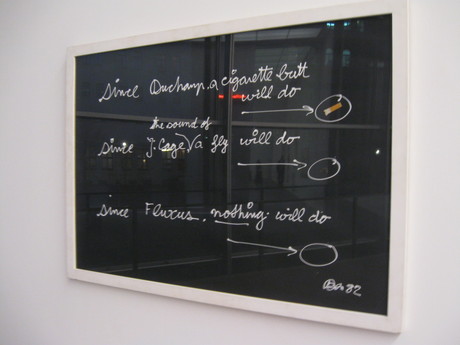 since Duchamp. a cigarette butt
will do
the sound of
since J. Cage √ a fly will do
since Fluxus. nothing will do
Ben 82